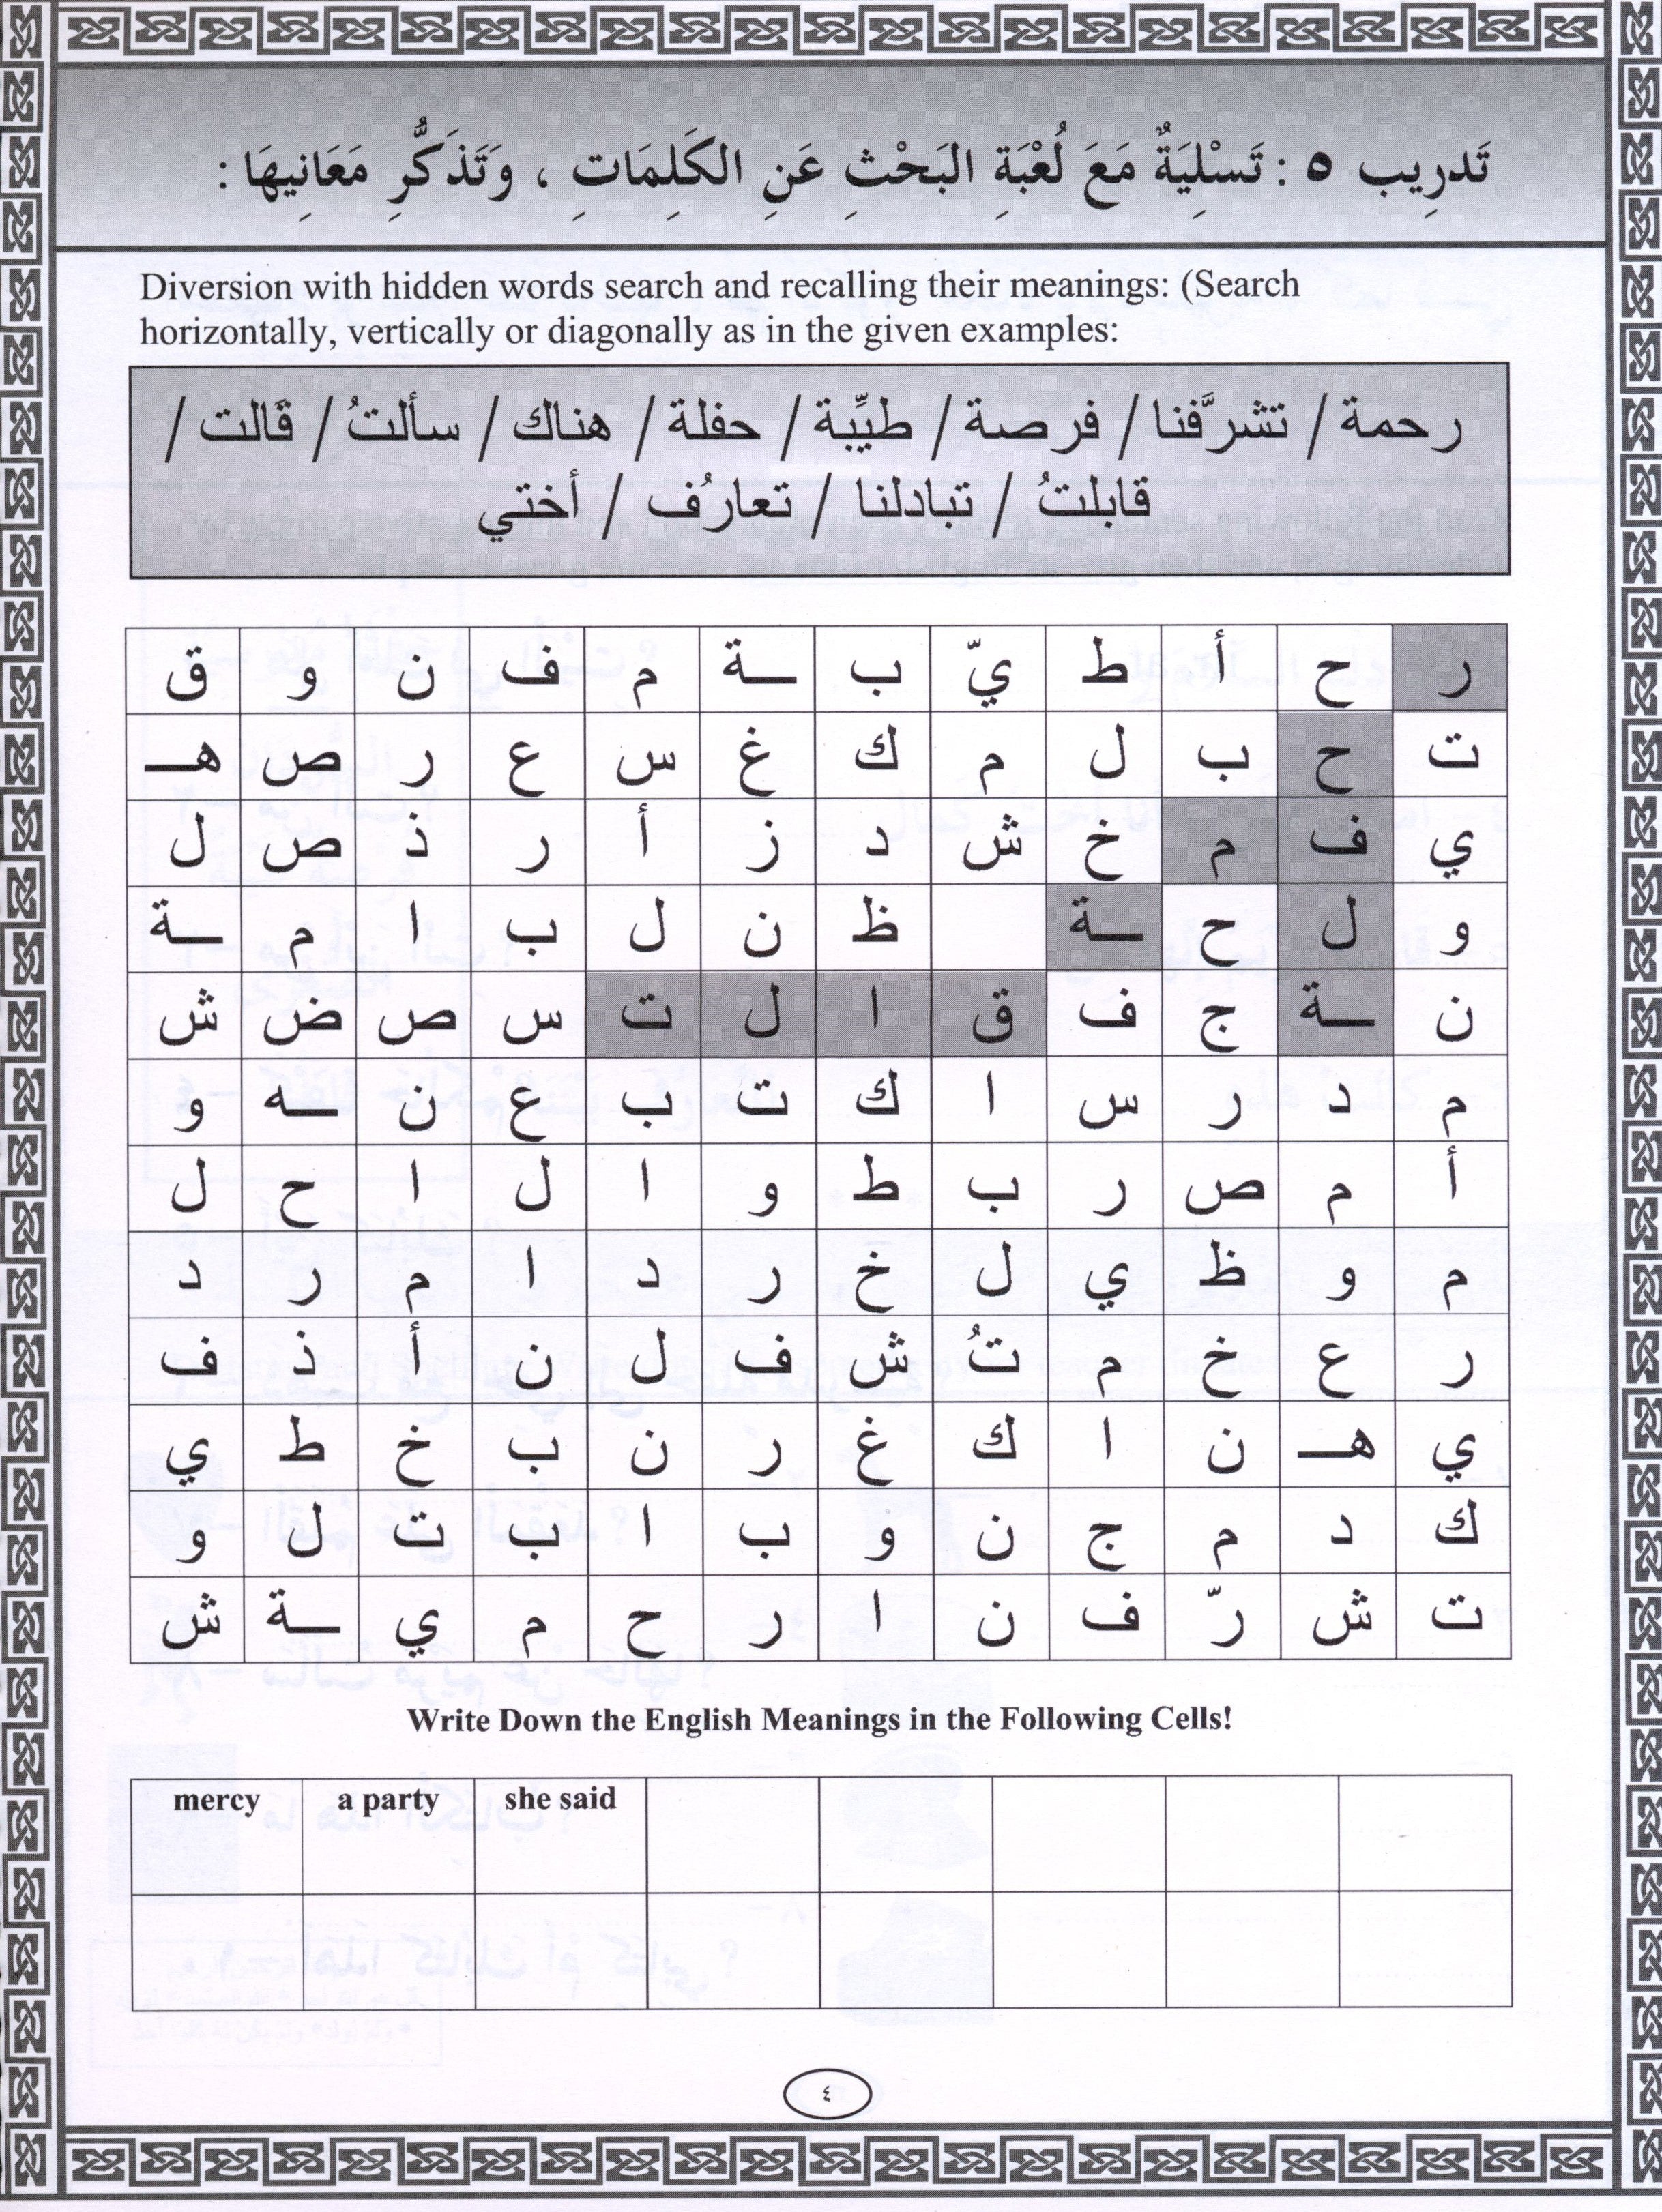 تَدرِيب ٥ : تَسْلِيَةٌ مَعَ لُعْبَةِ البَحْثِ عَنِ الكَلِمَاتِ ، وَتَذَكُّرِ مَعَانِيهَا :
Diversion with hidden words search and recalling their meanings: (Search
horizontally, vertically or diagonally as in the given examples:
رحمة / تشرَّفنا / فرصة / طيِّبة / حفلة / هناك / سألتُ / قالت /
قابلتُ / تبادلنا / تعارُف / أختي
ر ح أ ط يّ ب ـة م ف ن و ق
ت ح ب ل م ك غ س ع ر ص هـ
ي ف م خ ش د ز أ ر ذ ص ل
و ل ح ـة ظ ن ل ب ا م ـة
ن ـة ج ف ق ا ل ت س ص ض ش
م د ر س ا ك ت ب ع ن ـه و
أ م ص ر ب ط و ا ل ا ح ل
م و ظ ي ل خ ر د ا م ر د
ر ع خ م تُ ش ف ل ن أ ذ ف
ي هـ ن ا ك غ ر ن ب خ ط ي
ك د م ج ن و ب ا ب ت ل و
ت ش رّ ف ن ا ر ح م ي ـة ش
Write Down the English Meanings in the Following Cells!
mercy a party she said
٤